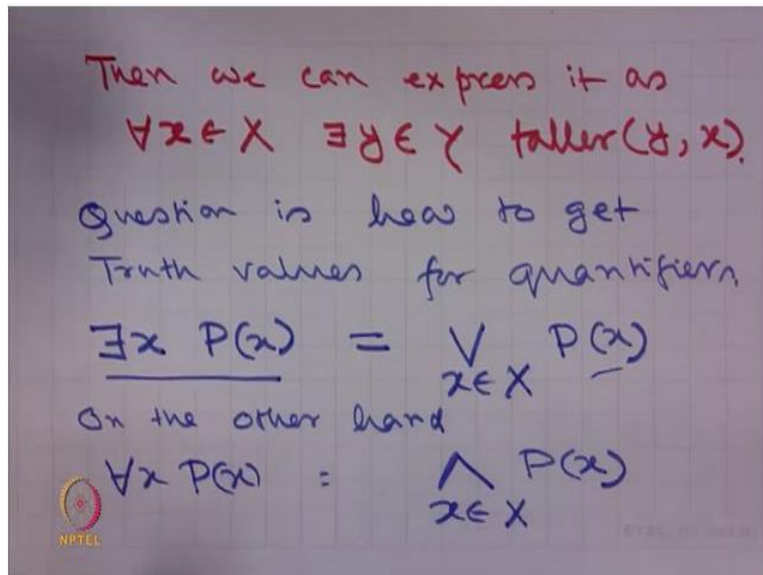 Then we can express it as
∀x ∈ X ∃y ∈ Y taller(y, x).
Question is how to get
Truth values for quantifiers.
∃x P(x) = ∨ P(x)
x ∈ X
On the other hand
∀x P(x) = ∧ P(x)
x ∈ X
NPTEL